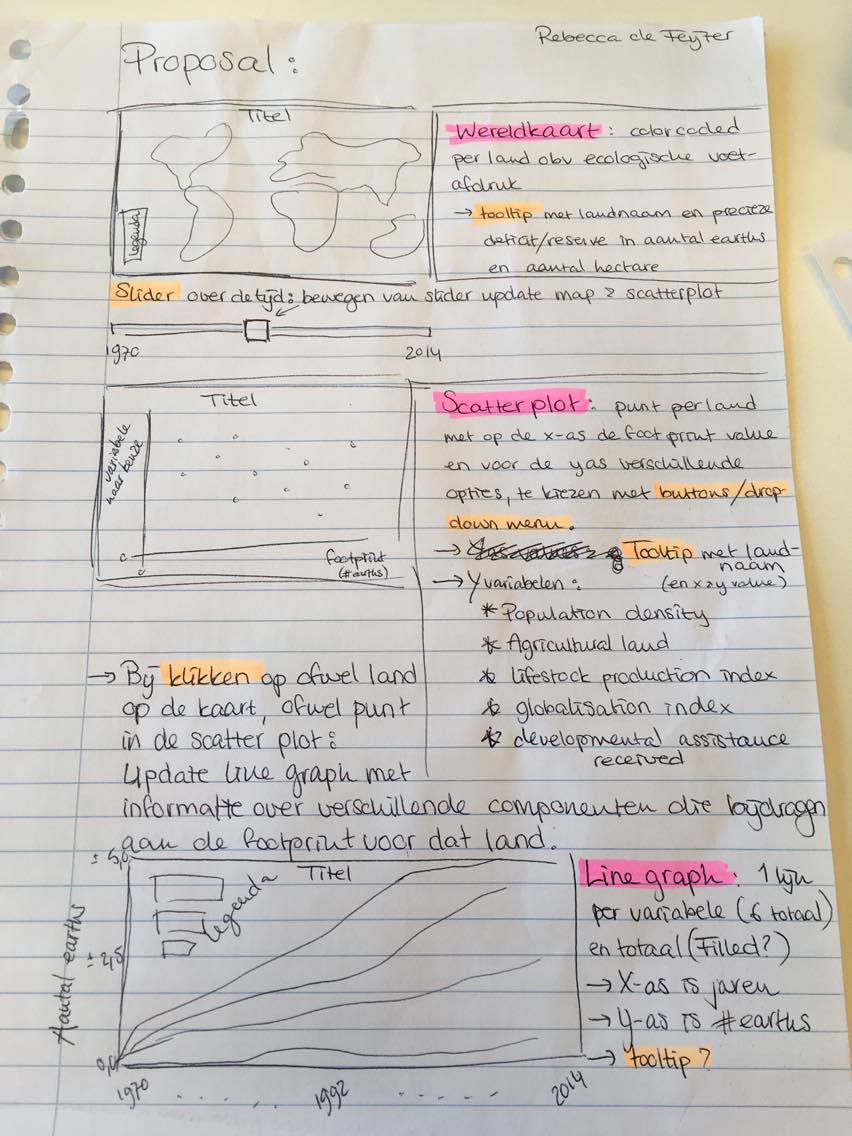 Rebecca de Feyter
Proposal:
Titel
legenda
Wereldkaart: colorcoded
per land obv ecologische voet-
afdruk
→ tooltip met landnaam en precieze
deficit/reserve in aantal earths
en aantal hectare
Slider over de tijd: bewegen van slider update map & scatterplot
1970
2014
Titel
variabele
naar keuze
footprint
(#earths)
Scatterplot: punt per land
met op de x-as de footprint value
en voor de y as verschillende
opties, te kiezen met buttons/drop-
down menu.
→ Tooltip met land-
naam
(en x & y value)
→ Y variabelen:
* Population density
* Agricultural land
* lifestock production index
* globalisation index
* developmental assistance
received
→ Bij klikken op ofwel land
op de kaart, ofwel punt
in de scatter plot:
Update line graph met
informatie over verschillende componenten die bijdragen
aan de footprint voor dat land.
± 5,0
Titel
legenda
Aantal earths
± 2,5
0,0
1970 ..... 1992 ..... 2014
Line graph: 1 lijn
per variabele (6 totaal)
en totaal (Filled?)
→ X-as is jaren
→ Y-as is #earths
→ tooltip?